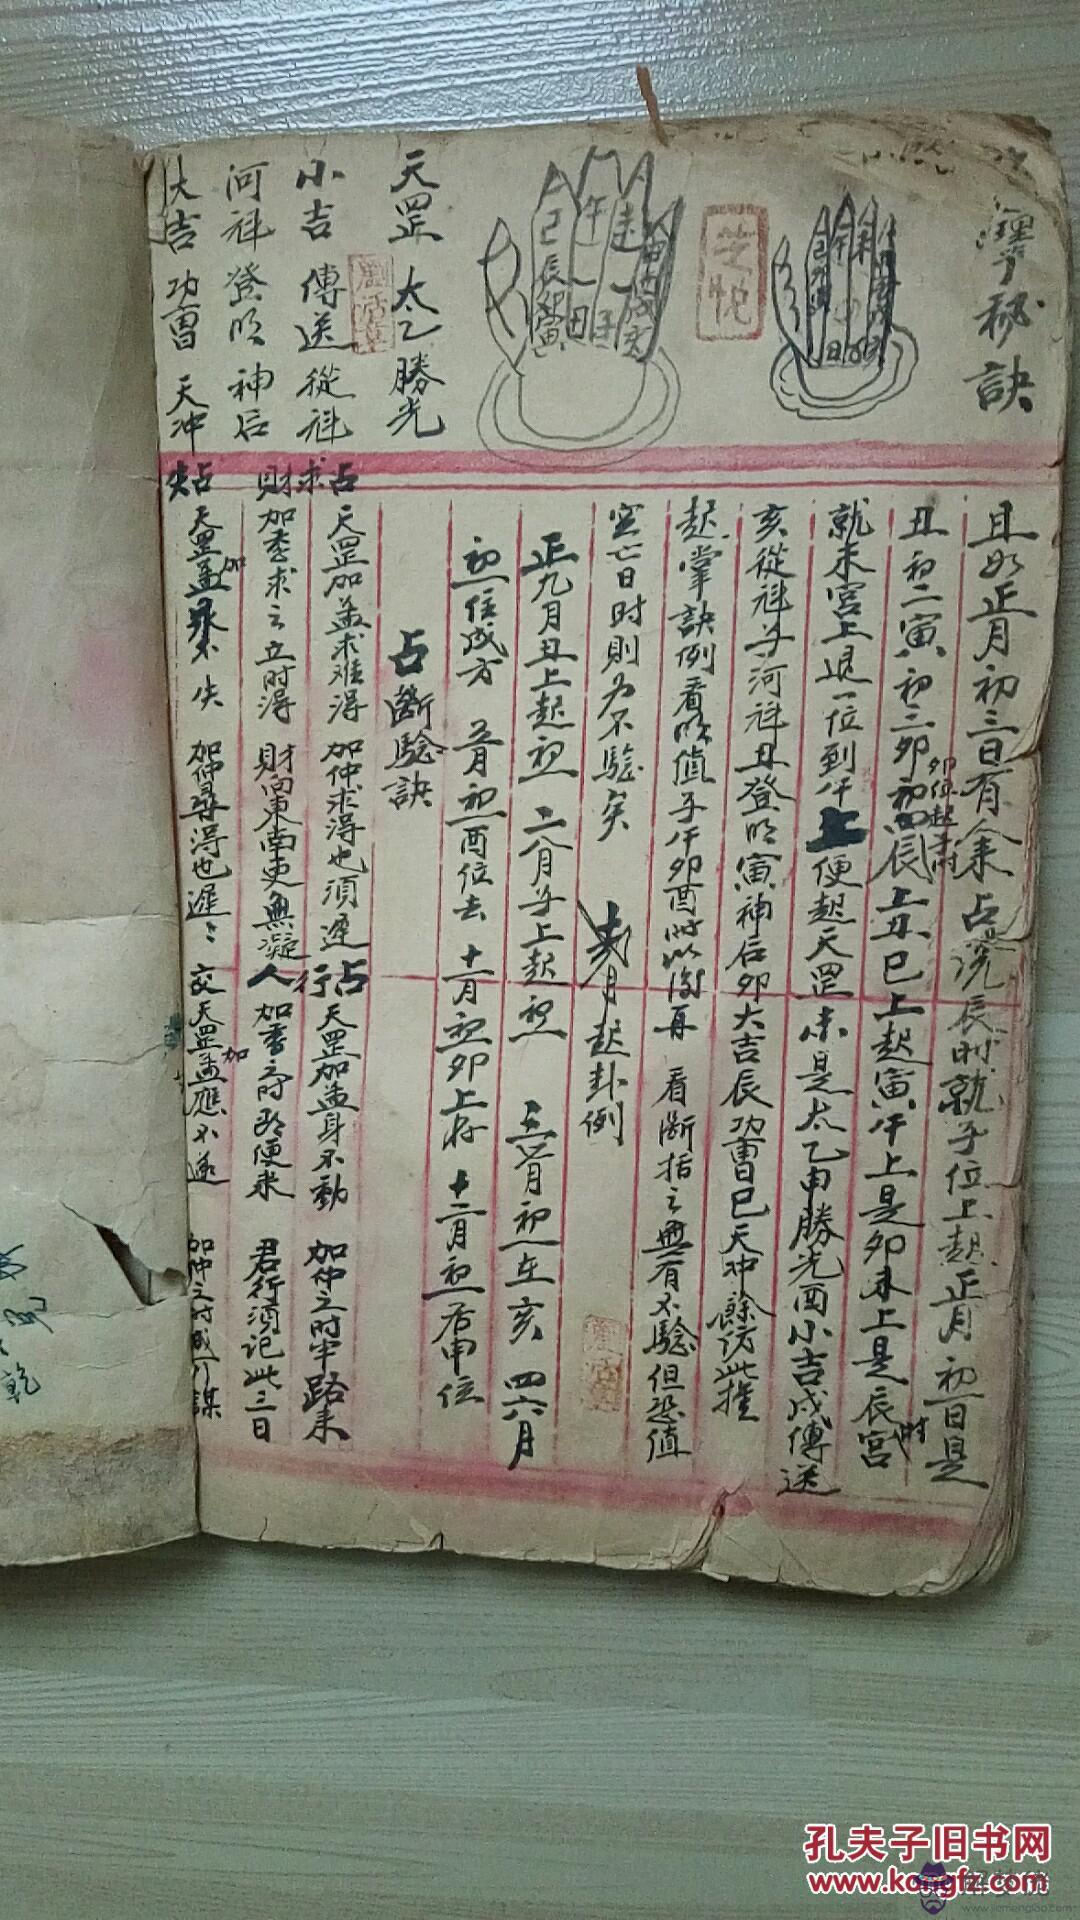 秘訣
天罡 太乙 勝光
小吉 傳送 從科
河科 登明 神后
大吉 功曹 天冲
且如正月初三日有人來占說辰时就子位上起正月初一日是
丑初二寅初三卯初四辰上丑巳上起寅午上是卯未上是辰宮
卯位起子时
时
就未宮上退一位到午上便起天罡未是太乙申勝光酉小吉戌傳送
亥從科子河科丑登明寅神后卯大吉辰功曹巳天冲餘仿此推
起掌訣例看臨值子午卯酉时以後再看斷指之無有不驗但恐值
空亡日时則为不驗矣
月起卦例
正九月丑上起初一 二八月子上起初一 三七月初一在亥 四六月
初一信戌方 五月初一酉位去 十一月初一卯上存 十二月初一居申位
占斷驗訣
占求財
天罡加孟求难得 加仲求得也須遲
加季求之立时得 財向東南更無凝
占行人
天罡加孟身不動 加仲之时半路来
加季之时即便来 君行須记此三日
占失
天罡加孟来不失 加仲尋得也遲遲
天罡加孟應不遂 加仲之时成可謀
芝悅
巳 午 未 申 酉 戌 亥
辰 卯 寅 丑 子
乾
孔夫子旧书网
www.kongfz.com
解梦佬
www.jiemenglao.com